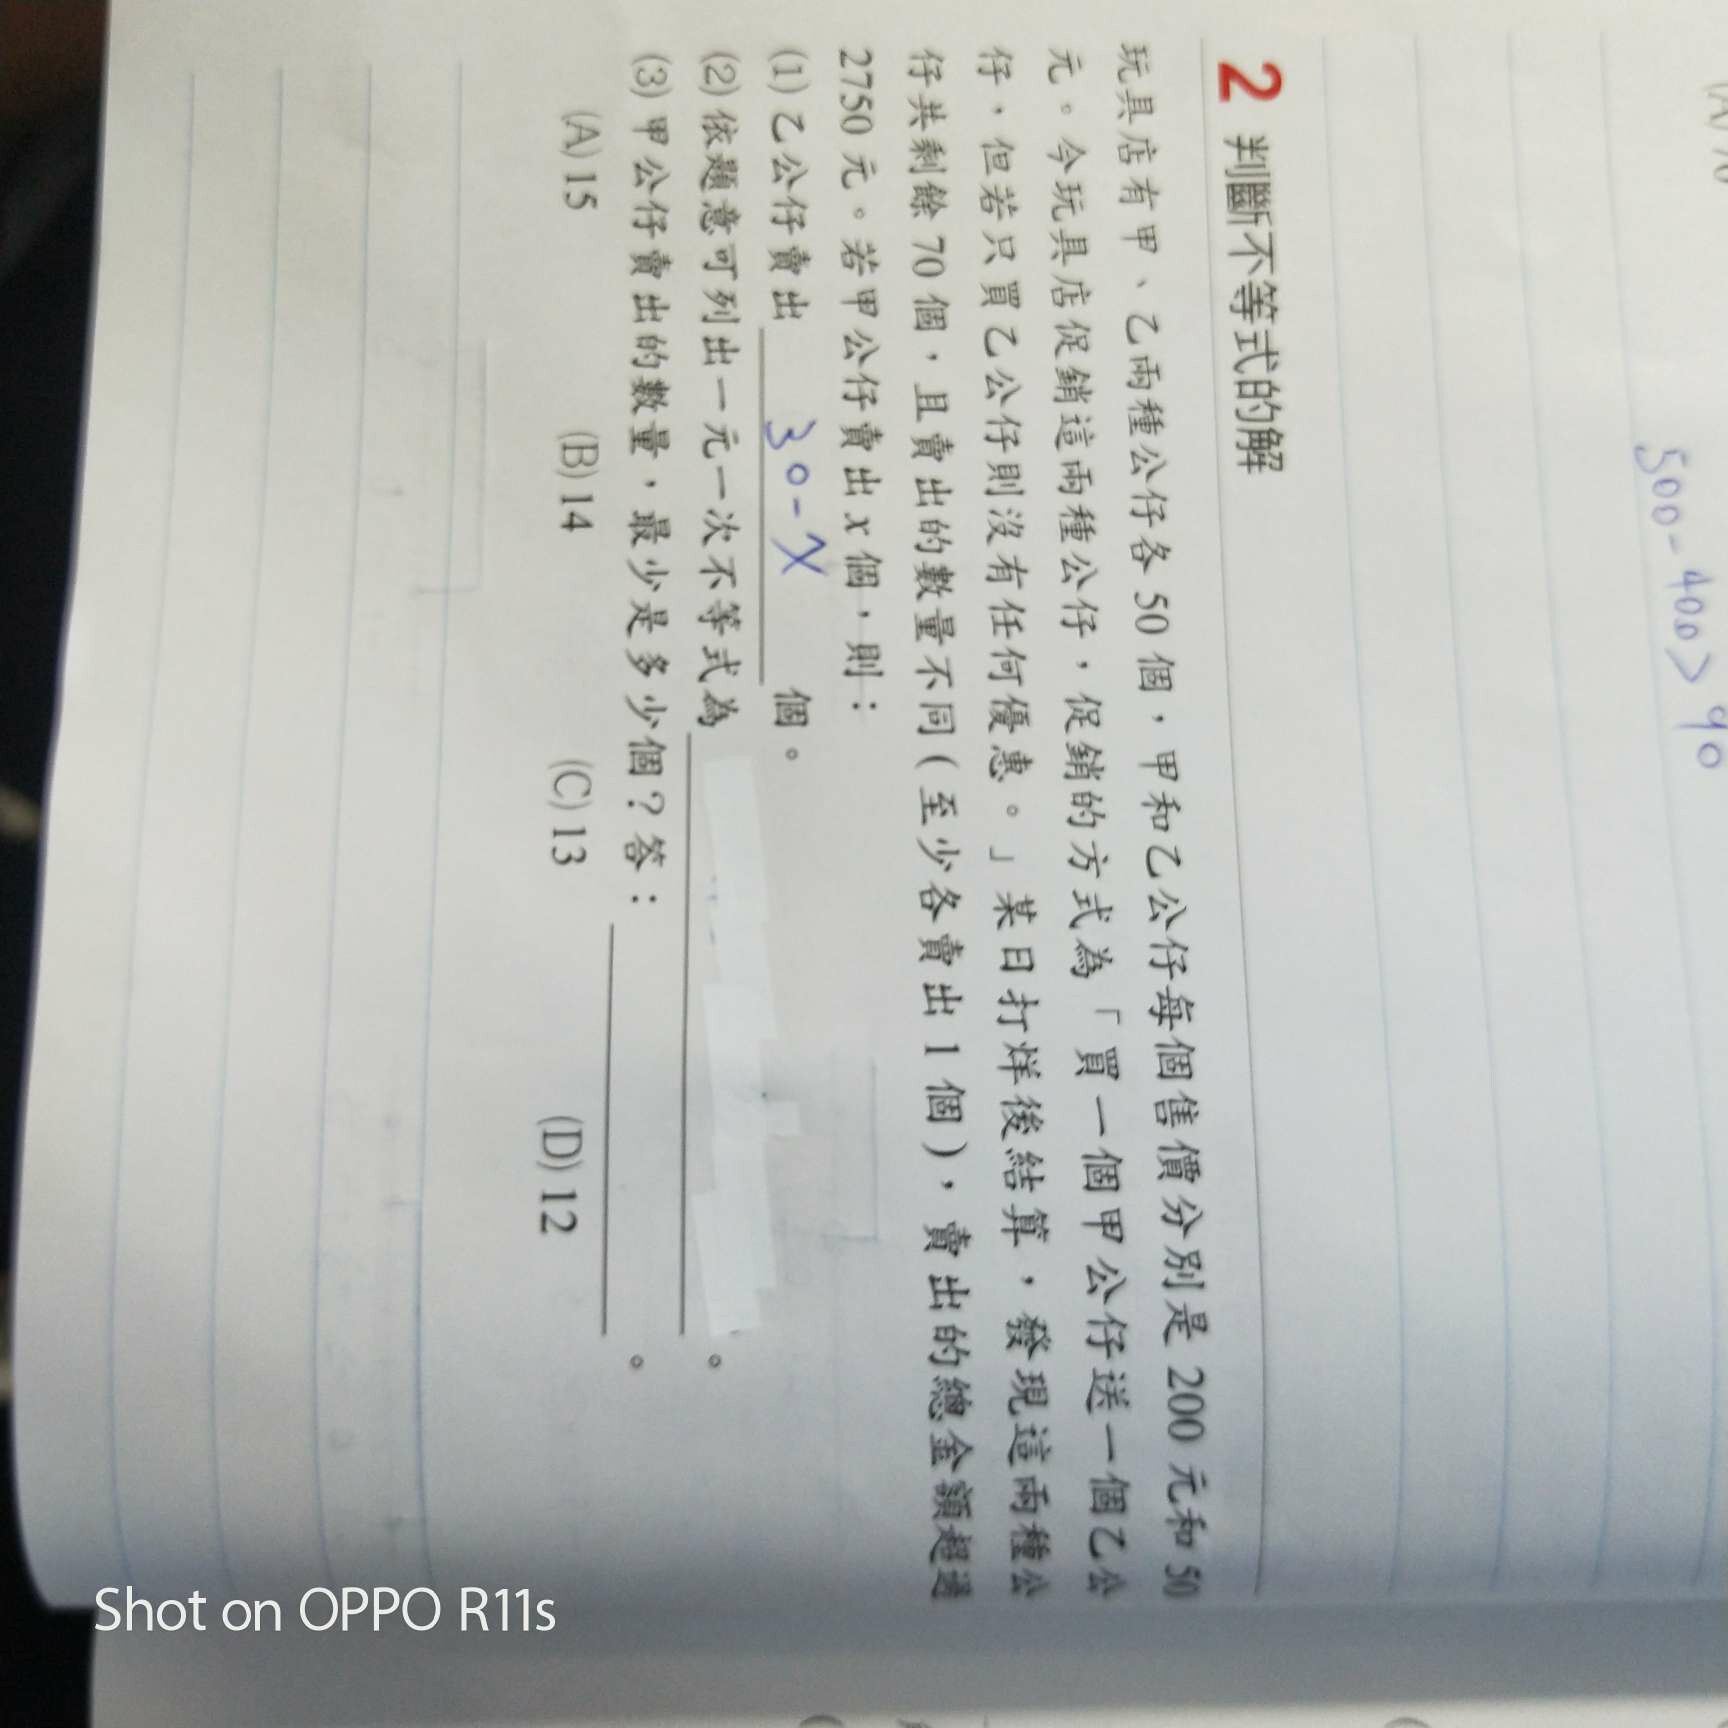 500-400>90
2 判斷不等式的解
玩具店有甲、乙兩種公仔各 50 個，甲和乙公仔每個售價分別是 200 元和 50
元。今玩具店促銷這兩種公仔，促銷的方式為「買一個甲公仔送一個乙公
仔，但若只買乙公仔則沒有任何優惠。」某日打烊後結算，發現這兩種公
仔共剩餘 70 個，且賣出的數量不同(至少各賣出 1 個)，賣出的總金額超過
2750 元。若甲公仔賣出 x 個，則：
(1) 乙公仔賣出 30-x 個。
(2) 依題意可列出一元一次不等式為 。
(3) 甲公仔賣出的數量，最少是多少個？答： 。
(A) 15 (B) 14 (C) 13 (D) 12
Shot on OPPO R11s